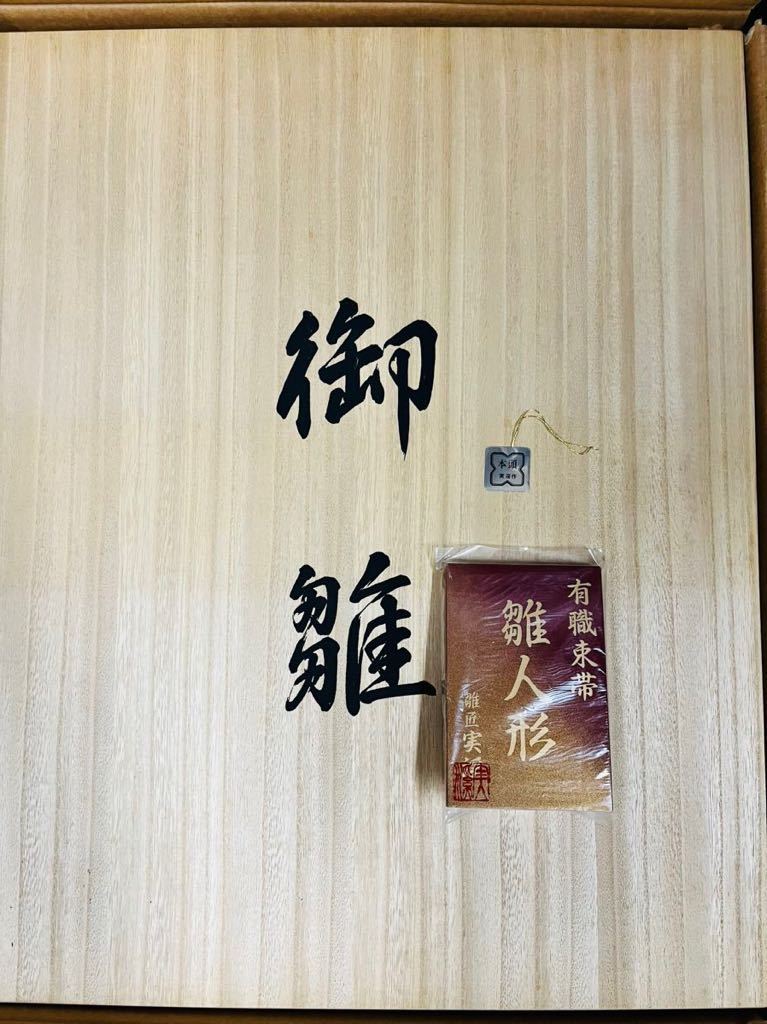 御雛
本頭
有職束帯
雛人形
雛匠実